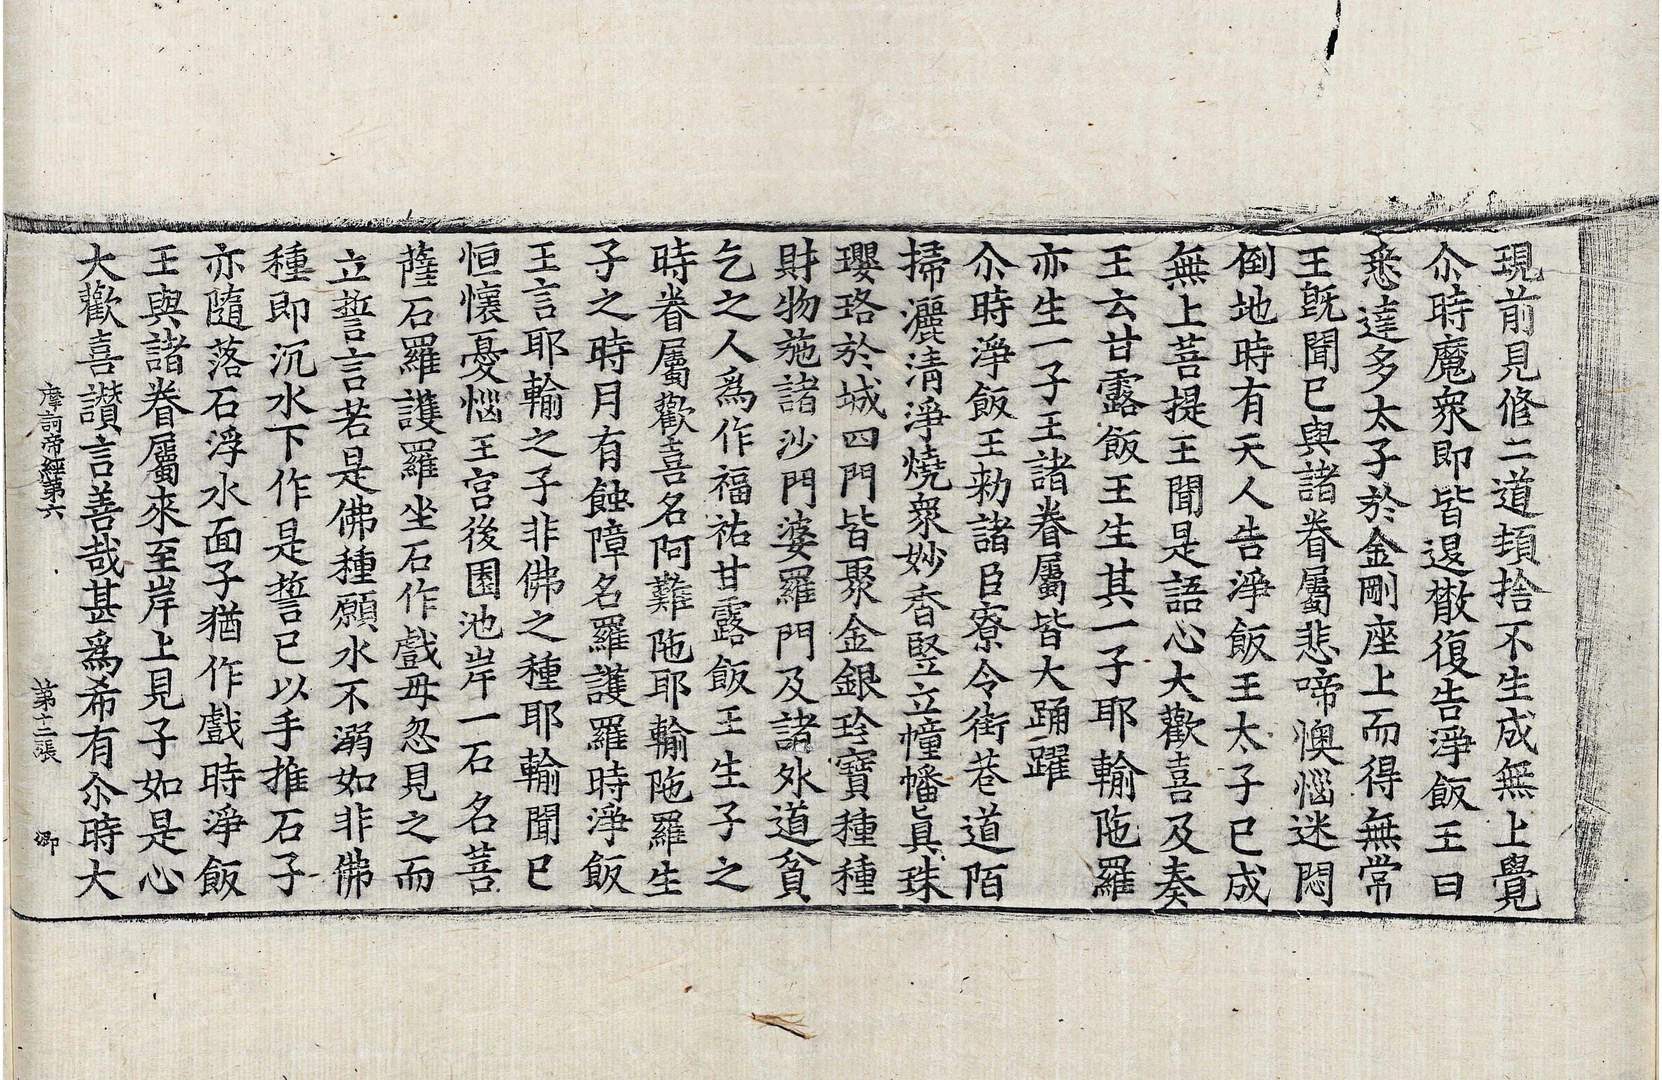 現前見修二道頓捨不生成無上覺
尒時魔衆即皆退散復告淨飯王曰
悉達多太子於金剛座上而得無常
王旣聞已與諸眷屬悲啼懊惱迷悶
倒地時有天人告淨飯王太子已成
無上菩提王聞是語心大歡喜及奏
王云甘露飯王生其一子耶輸陁羅
亦生一子王諸眷屬皆大踊躍
尒時淨飯王勑諸臣寮令街巷道陌
掃灑清淨燒衆妙香竪立幢幡眞珠
瓔珞於城四門皆聚金銀珍寶種種
財物施諸沙門婆羅門及諸外道貧
乞之人爲作福祐甘露飯王生子之
時眷屬歡喜名阿難陁耶輸陁羅生
子之時月有蝕障名羅護羅時淨飯
王言耶輸之子非佛之種耶輸聞已
恒懷憂惱王宮後園池岸一石名菩
薩石羅護羅坐石作戲母忽見之而
立誓言若是佛種願水不溺如非佛
種即沉水下作是誓已以手推石子
亦隨落石浮水面子猶作戲時淨飯
王與諸眷屬來至岸上見子如是心
大歡喜讚言善哉甚爲希有尒時大
摩訶帝經第六 第十二張 卿